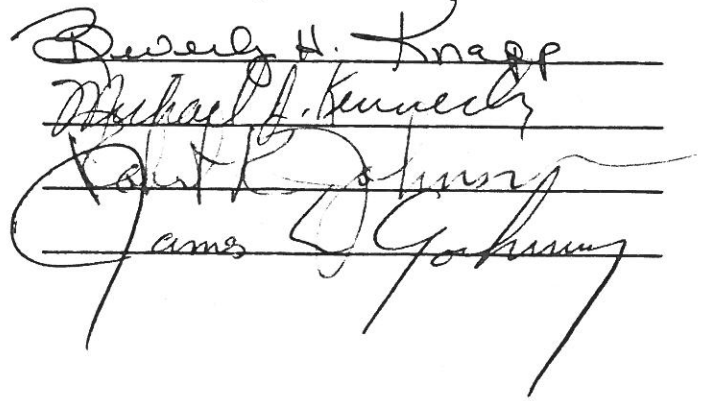 Beverly H. Knapp
Michael A. Kennedy
Robert K. Johnson
James